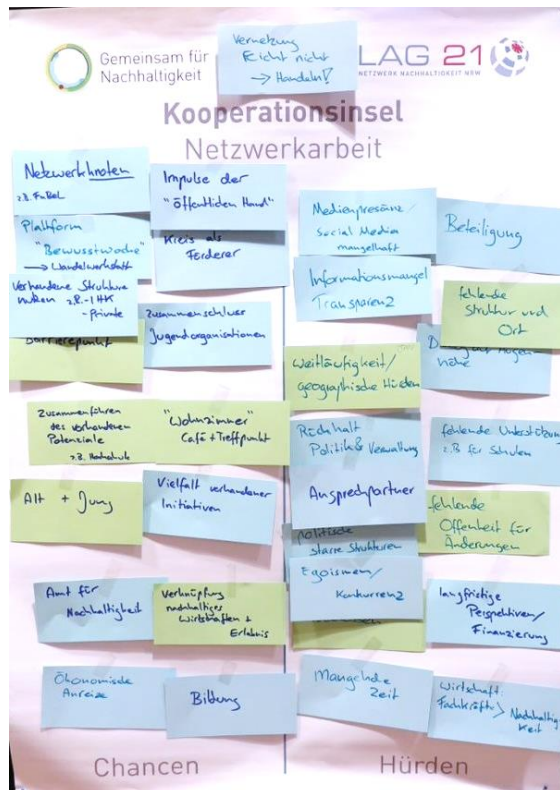 Gemeinsam für
Nachhaltigkeit
Vernetzung
Reicht nicht
→ Handeln!
LAG 21
NETZWERK NACHHALTIGKEIT NRW
Kooperationsinsel
Netzwerkarbeit
Netzwerkknoten
z.B. FaBeL
Plattform
"Bewusstwoche"
→ Wandelwerkstatt
Vorhandene Struktur
nutzen z.B. - IHK
- Private
Zusammenführen
des vorhandenen
Potenziale
z.B. Hochschule
Alt + Jung
Amt für
Nachhaltigkeit
Ökonomische
Anreize
Impulse der
"öffentlichen Hand"
Kreis als
Förderer
Zusammenschluss
Jugendorganisationen
"Wohnzimmer"
Café + Treffpunkt
Vielfalt vorhandener
Initiativen
Verknüpfung
nachhaltiges
Wirtschaften +
Erlebnis
Bildung
Chancen
Medienpräsenz/
Social Media
mangelhaft
Informationsmangel
Transparenz
Weitläufigkeit/
geographische Hürden
Rückhalt
Politik & Verwaltung
Ansprechpartner
politische
starre Strukturen
Egoismen/
Konkurrenz
Mangelnde
Zeit
Beteiligung
fehlende
Struktur und
Ort
fehlende Unterstützung
z.B für Schulen
fehlende
Offenheit für
Änderungen
langfristige
Perspektiven/
Finanzierung
Wirtschaft
Fachkräfte > Nachhaltig
keit
Hürden